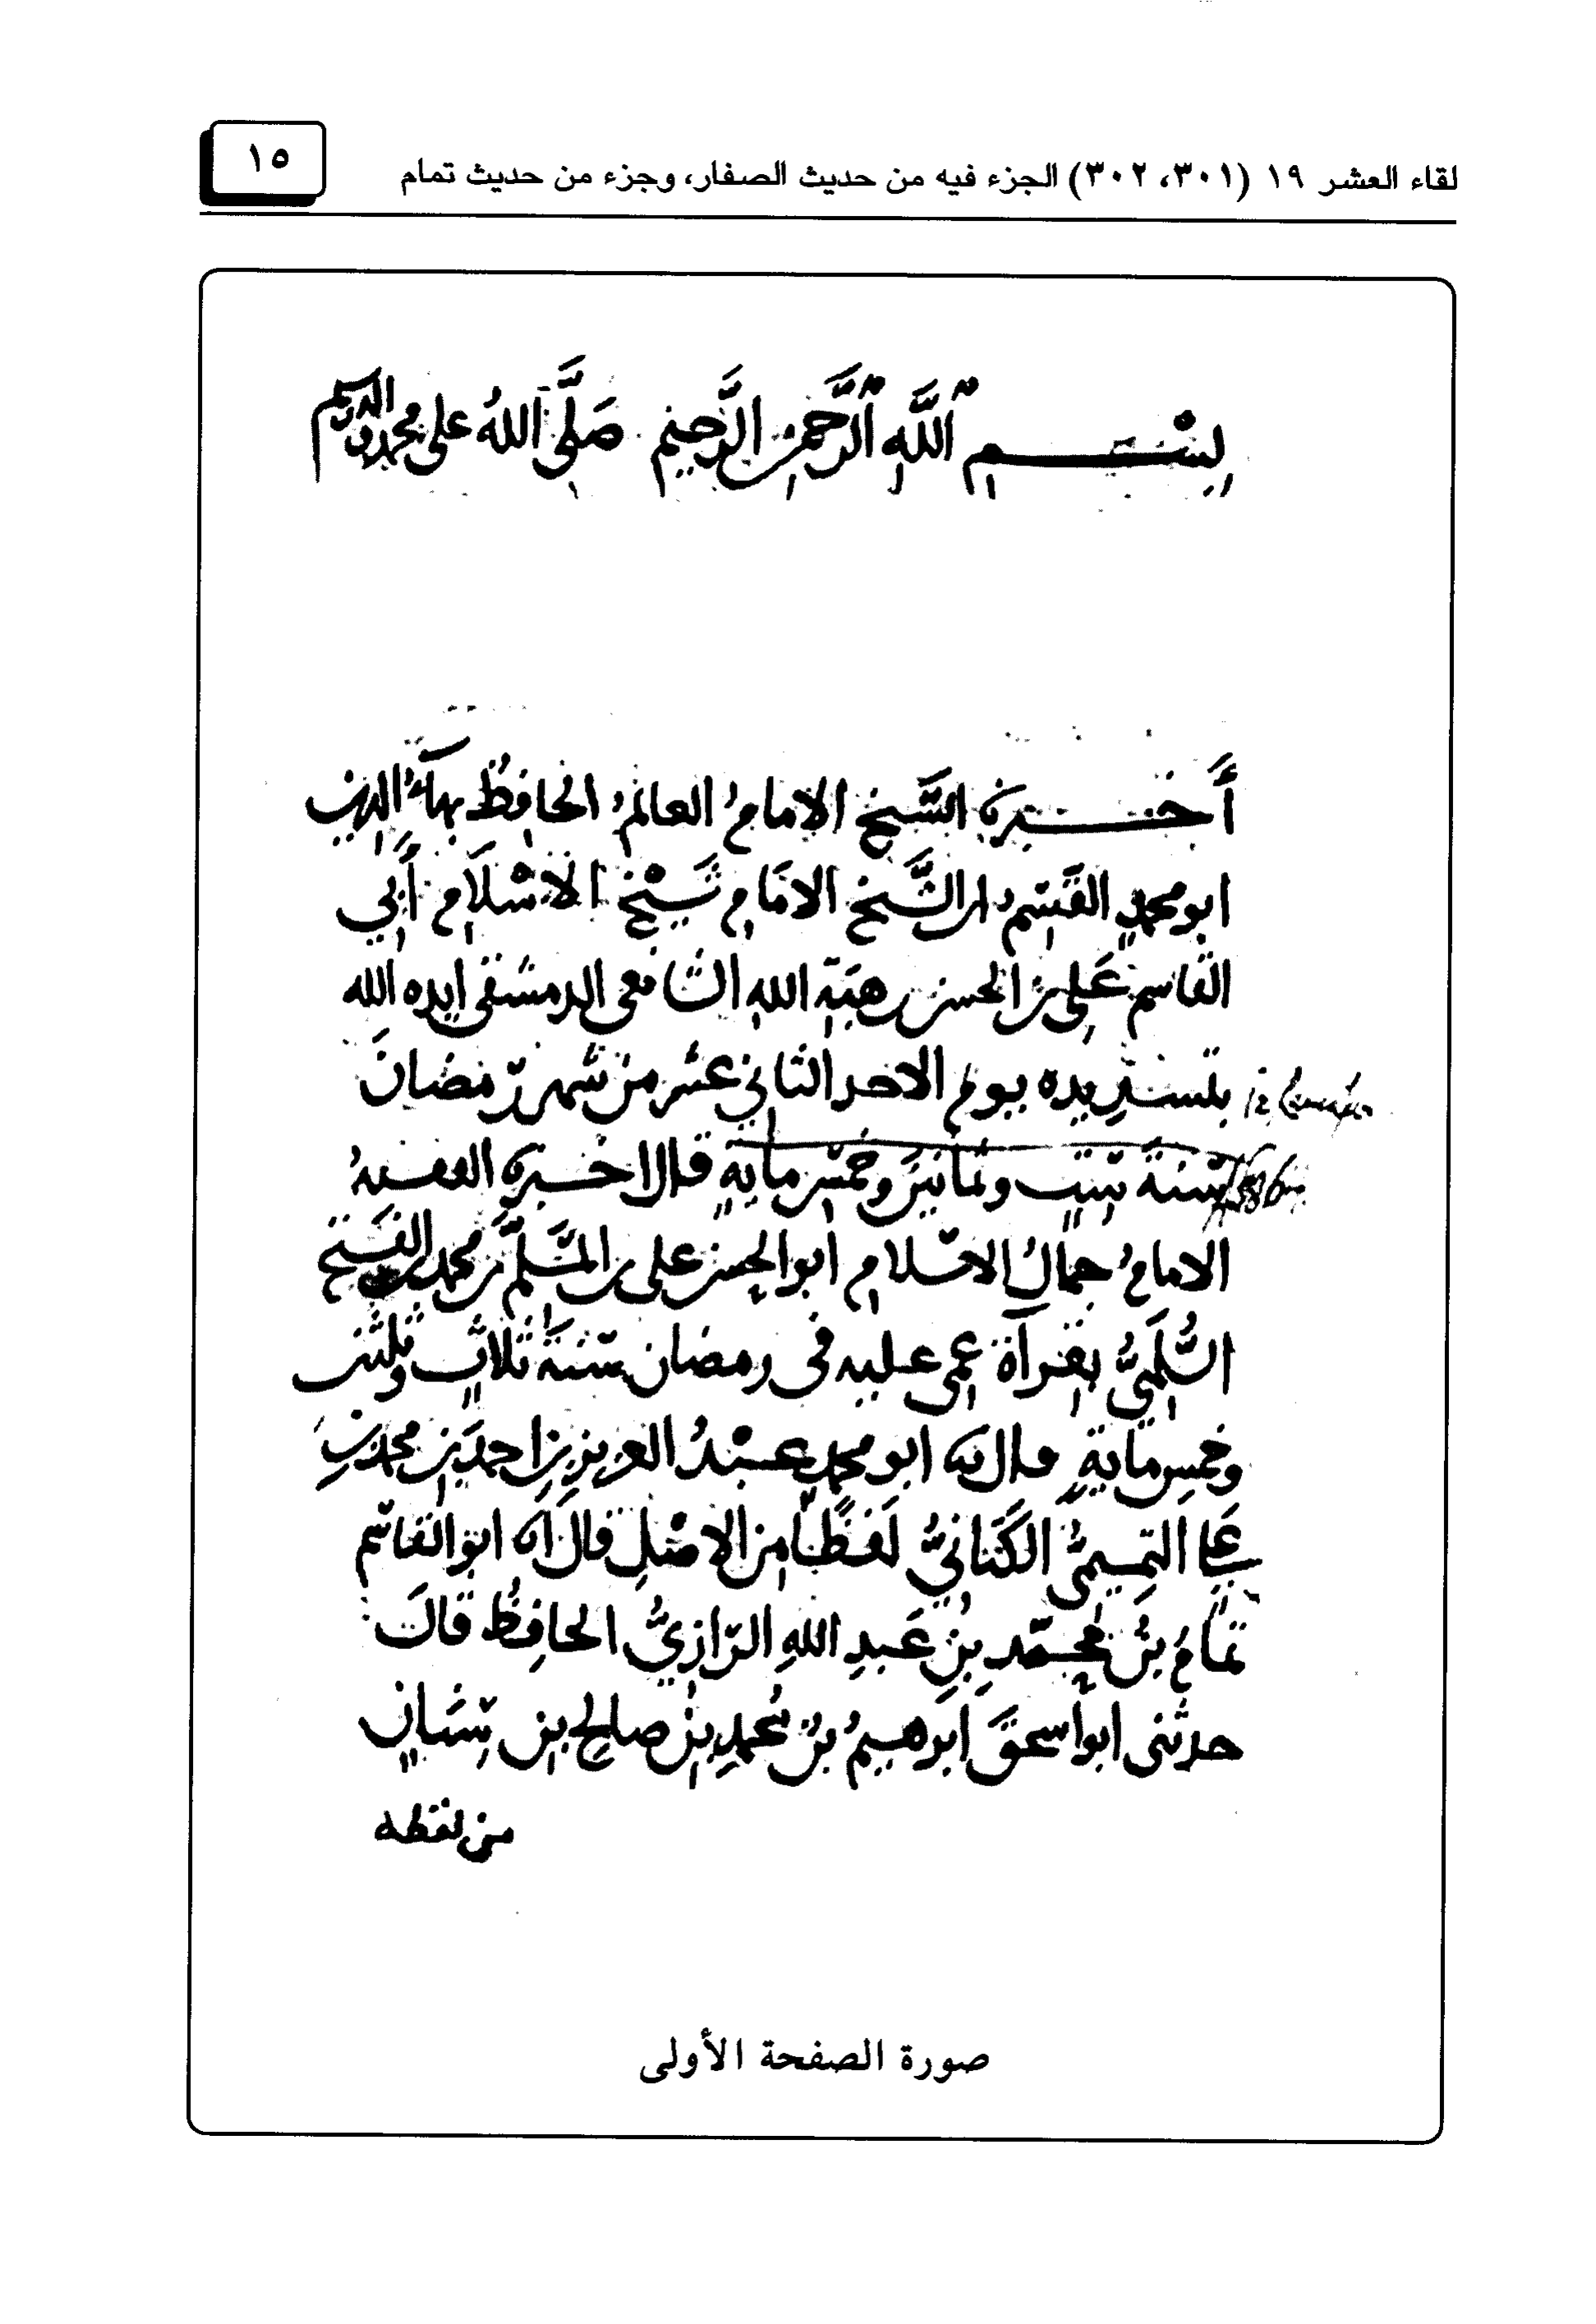 لقاء العشر ١٩ (٣٠١، ٣٠٢) الجزء فيه من حديث الصفار، وجزء من حديث تمام
١٥
بِسْمِ اللَّهِ الرَّحْمٰنِ الرَّحِيمِ صَلَّى اللهُ على محمد
أخبرنا الشَّيخ الإمامُ العالمُ الحافِظُ بهاءُ الدين
ابو محمدٍ القَسَم الشَّيخ الامَامِ شَيْخ الاسْلَامِ أَبي
القاسم عَلي بن الحسن بن هبَة الله الشافعى الدمشقى ايده الله
يوم الاحد الثاني عشر من شهر رمضانَ
سَنةَ سِتٍ وثمانينَ وخمْسِ مايةٍ قال اخبرنا الفقيهُ
الامامُ جمالُ الاسلام ابو الحسن على بن المُسَلَّم بن محمد بن الفَتح
السُّلَمِيُّ بقراَة عمى عليه فى رمضان سَنةَ ثلاثٍ وثلثين
وخمسِ مايةٍ قال ثنا ابو محمدٍ عبْدُ العزيزِ بن احمدَ بن محمد بنِ
عَلي التمِيميُّ الكَتَانيُّ لَفظًا من الاصْلِ قال انا ابو القاسم
تمامُ بنُ محمّدِ بنِ عَبدِ اللهِ الرّازيُّ الحافِظُ قالَ
حدثنى ابو اسحقَ ابرهيمُ بنُ محمدِ بنِ صالحِ بنِ سِنَانٍ
من لفظه
صورة الصفحة الأولى